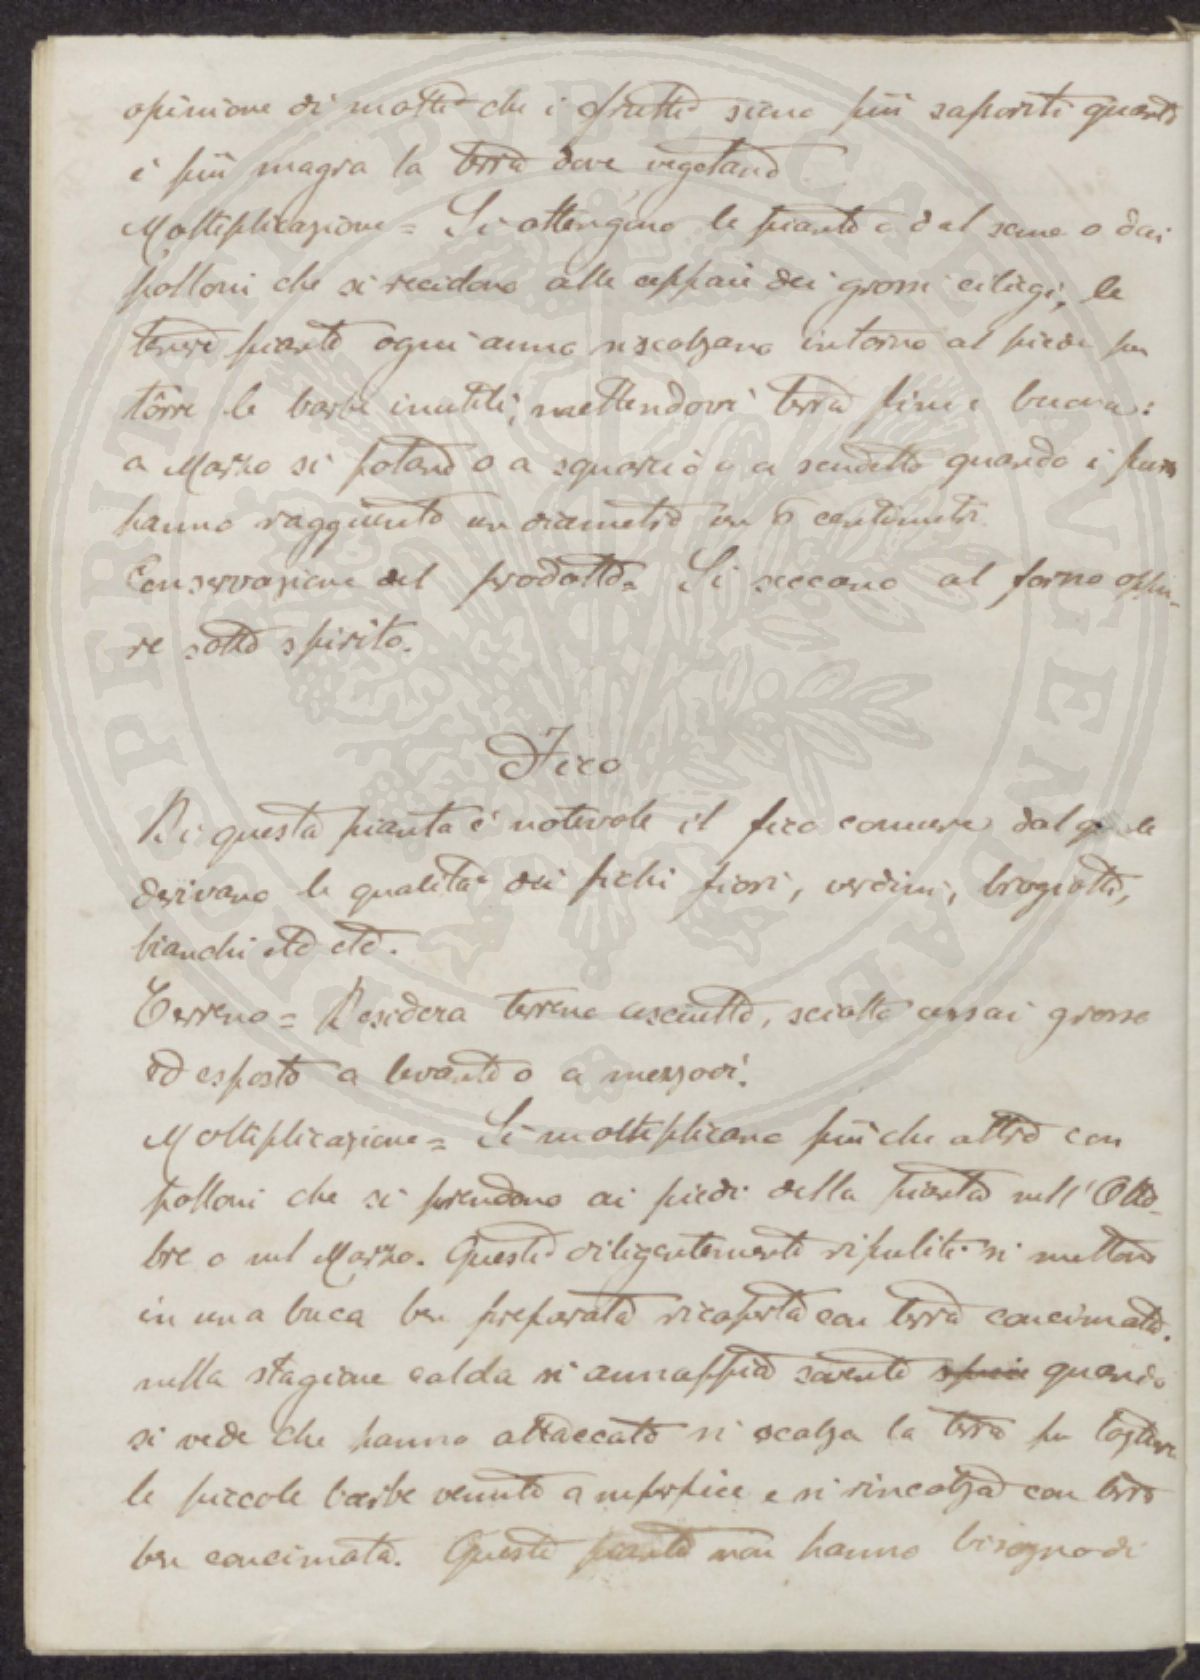 opinione di molti che i frutti siano più saporiti quanto
è più magra la terra dove vegetano
Moltiplicazione = Si ottengono le piante o dal seme o dai
polloni che si recidono alle ceppaie dei grossi ciliegi; le
tenere piante ogni anno si scalzano intorno al piede per
tôrre le barbe inutili, mettendovi terra fine e buona:
a Marzo si potano o a squarcio o a scudetto quando i
hanno raggiunto un diametro in 6 centimetri.
Conservazione del prodotto = Si seccano al forno oppu-
re sotto spirito.
Fico
Di questa pianta è notevole il fico comune dal quale
derivano le qualità dei fichi fiori, verdini, brogiotti,
bianchi etc etc.
Terreno = Desidera terreno asciutto, sciolto assai grosso
ed esposto a levante o a mezzodì.
Moltiplicazione = Si moltiplicano più che altro con
polloni che si prendono ai piedi della pianta nell'Otto-
bre o nel Marzo. Questi diligentemente ripuliti si mettono
in una buca ben preparata ricoperta con terra concimata.
nella stagione calda si annaffia sovente quando
si vede che hanno attaccato si scalza la terra per togliere
le piccole barbe venute a superfice e si rincalza con terra
ben concimata. Queste piante non hanno bisogno di